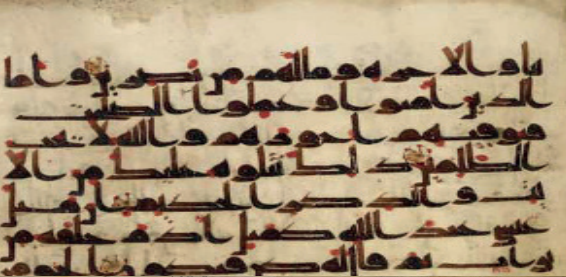 يا والاخرة وما لهم من نصرين واما
الذين امنوا وعملوا الصلحت
فيوفيهم اجورهم والله لا يحب
الظلمين ذلك نتلوه عليك من الا
يت والذكر الحكيم ان مثل
عيسى عند الله كمثل ادم خلقه من
تراب ثم قال له كن فيكون الحق من